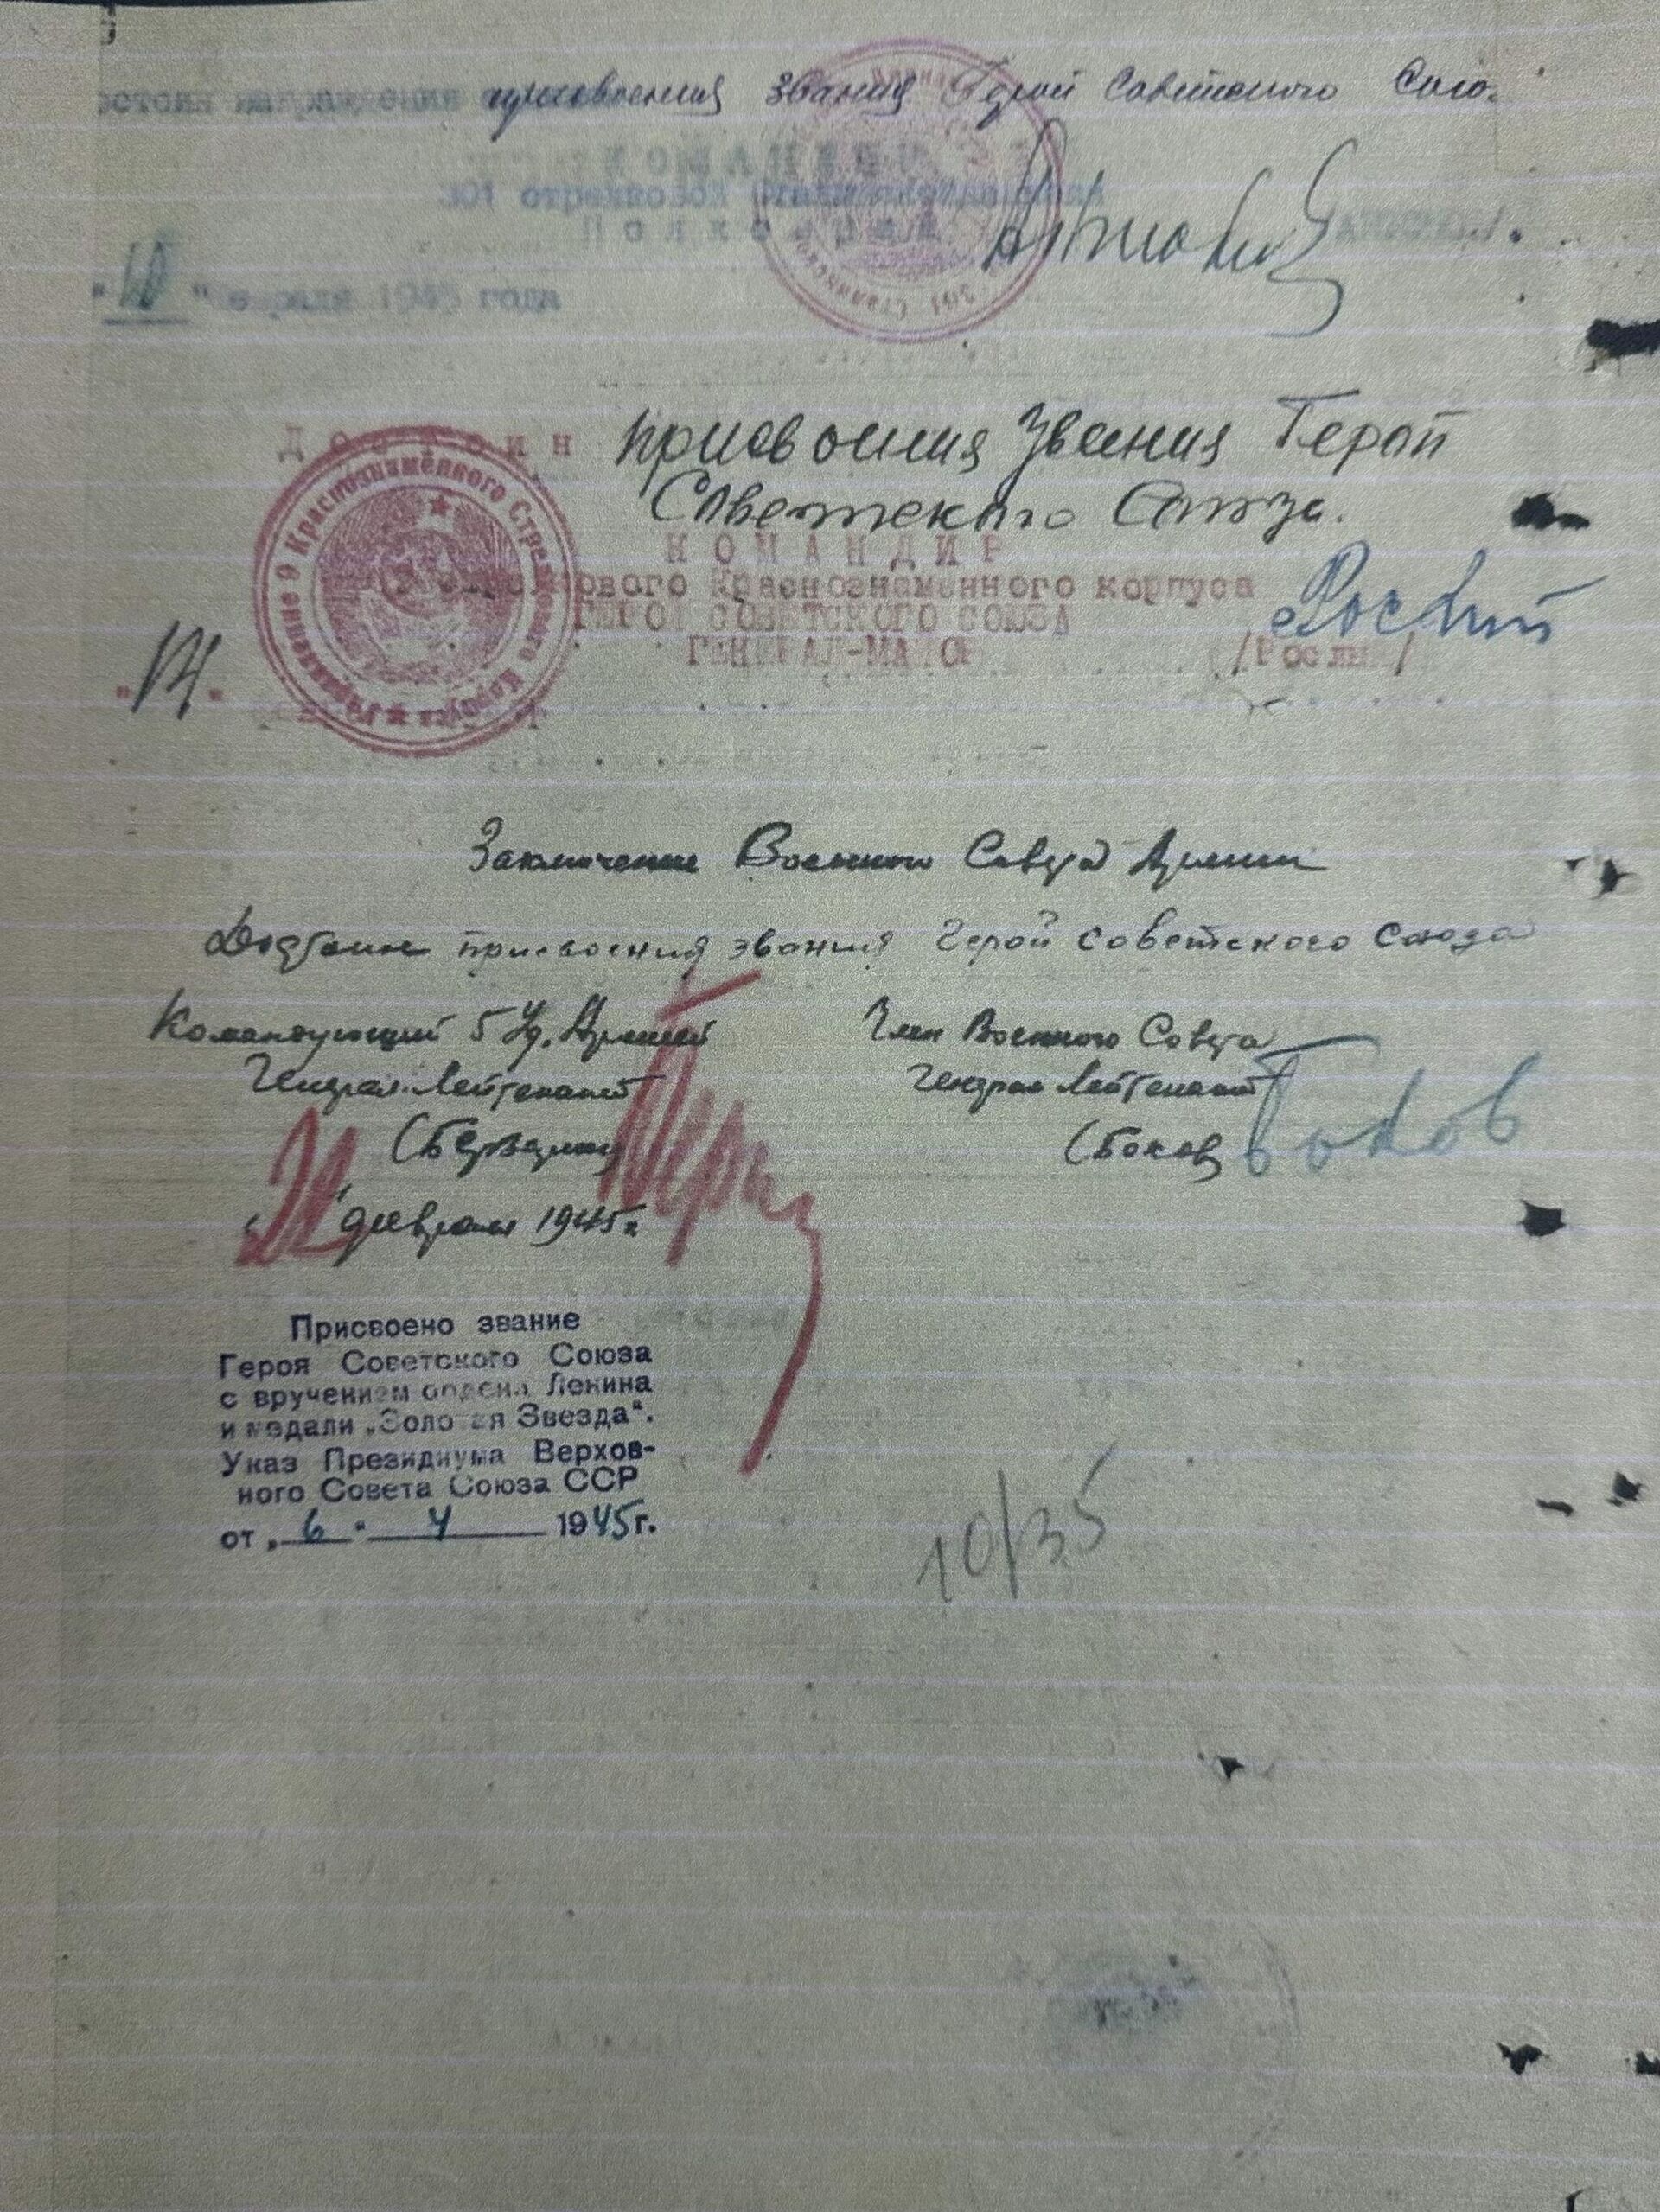 присвоения звания Герой Советского Союз
КОМАНДИР
301 стрелковой Сталинской дивизии
Полковник
Антонов
"10" февраля 1945 года
Достоин присвоения Звения Герой
Советского Союза.
КОМАНДИР
стрелкового Краснознаменного корпуса
ГЕРОЙ СОВЕТСКОГО СОЮЗА
ГЕНЕРАЛ-МАЙОР /Рослый/
Рослый
Управление 9 Краснознамённого Стрелкового Корпуса
Заключение Военного Совета Армии
Достоин присвоения звания Герой Советского Союза
Командующий 5 Уд. Армией
Генерал-Лейтенант
(Берзарин)
февраля 1945 г.
Член Военного Совета
Генерал Лейтенант
(Боков)
Боков
Присвоено звание
Героя Советского Союза
с вручением ордена Ленина
и медали „Золотая Звезда“.
Указ Президиума Верхов-
ного Совета Союза ССР
от „6“ 4 1945 г.
10/35